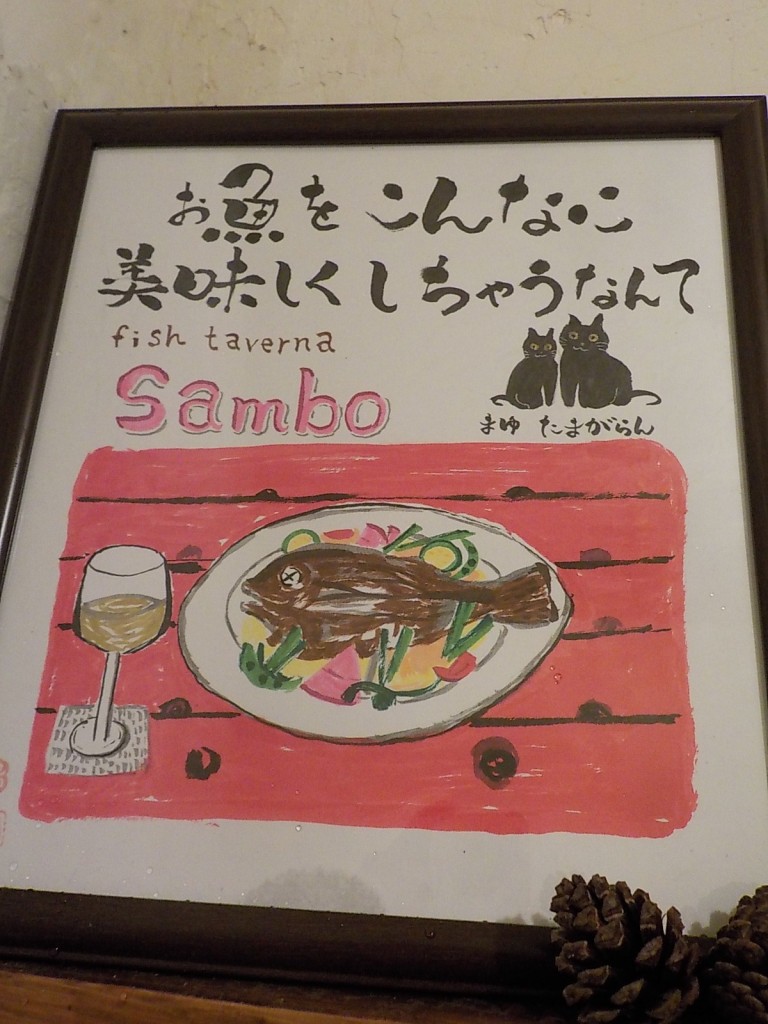 お魚を こんなに
美味しくしちゃうなんて
fish taverna
Sambo
まゆ たまがらん